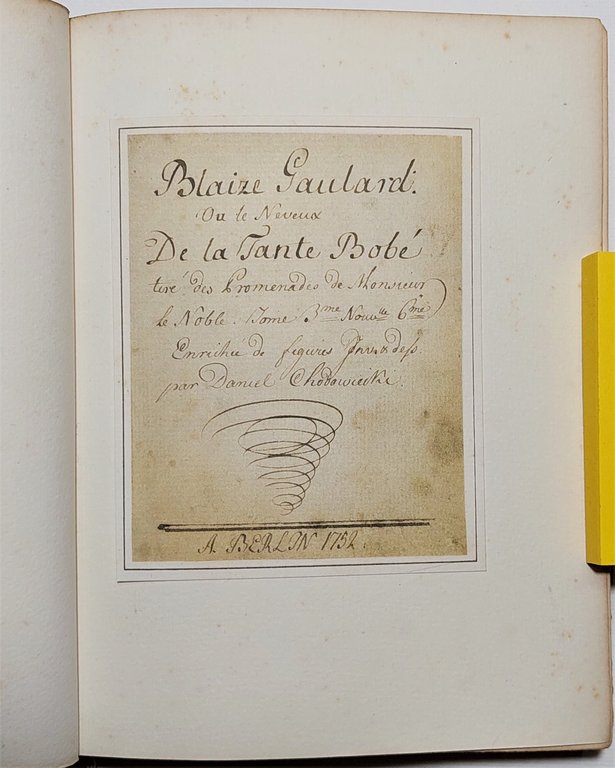 Blaize Gaulard.
Ou le Neveux
De la Tante Bobé
tiré des Promenades de Monsieur
le Noble. Tome 3me Nouvlle 6me
Enrichie de figures Inv. & dess.
par Daniel Chodowiecki.
A. BERLIN 1752.